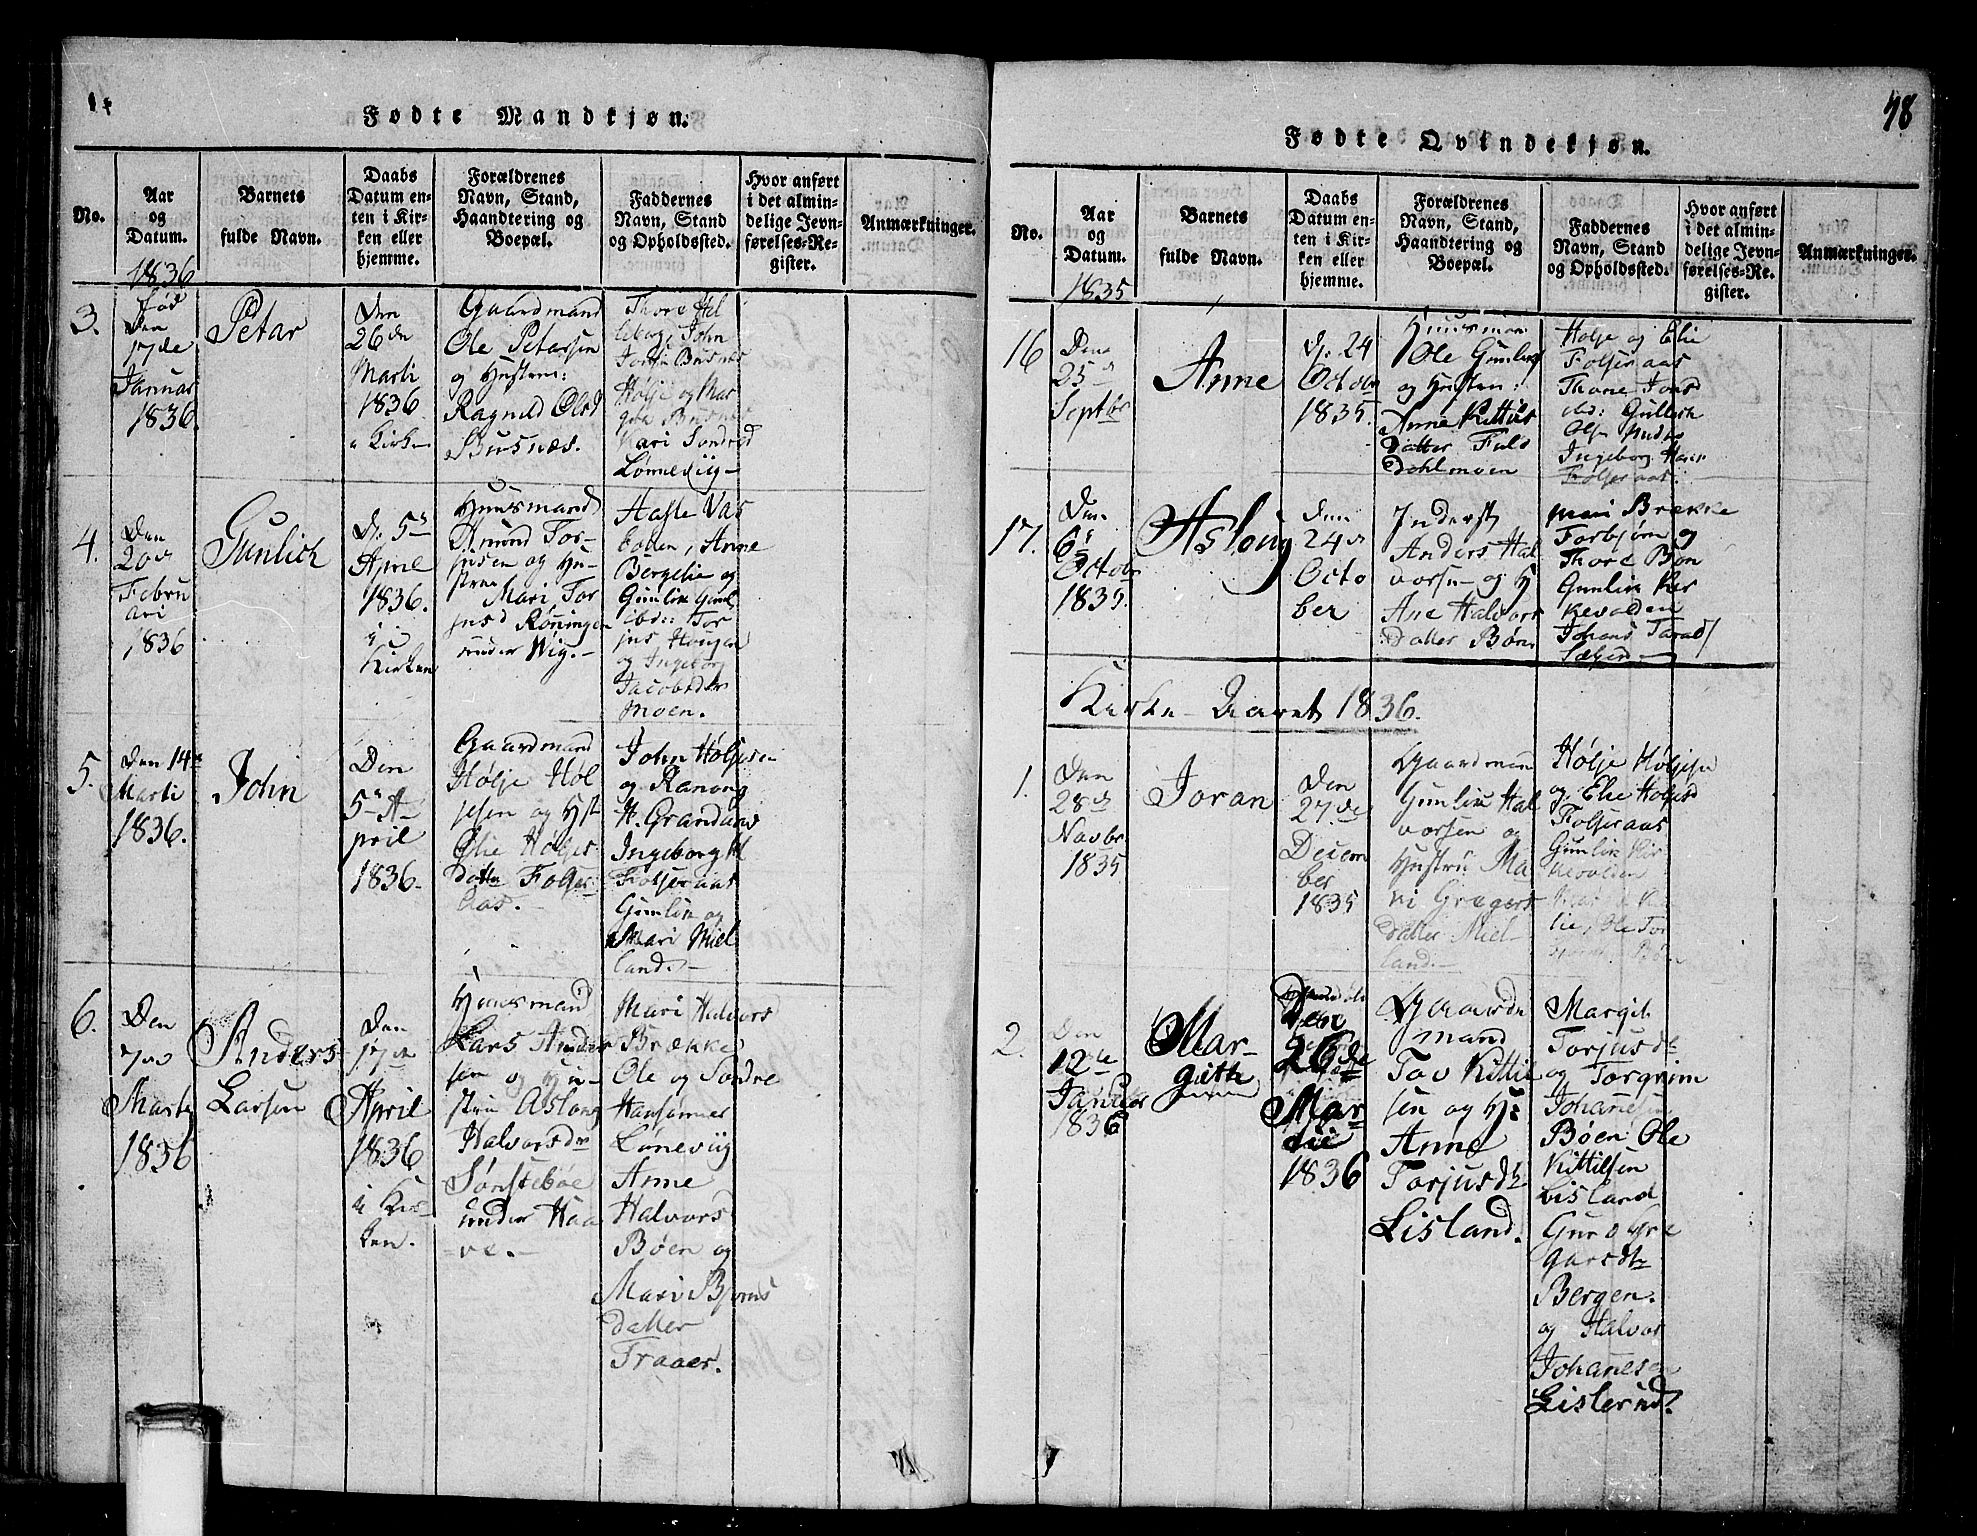 Fødte Mandkjøn.
No.
Aar
og
Datum.
1836
Barnets
fulde Navn.
Daabs
Datum en-
ten i Kir-
ken eller
hjemme.
Forældrenes
Navn, Stand,
Haandtering og
Boepæl.
Faddernes
Navn, Stand
og Opholdssted.
Hvor anført
i det almin-
delige Jevn-
førelses-Re-
gister.
Anmærkninger.
3.
Fød
den
17de
Januar
1836.
Petar
Den
26de
Marti
1836.
Kirke
Gaardmand
Ole Petersen
og Hustru:
Ragnild Olsd
Busnæs.
Thore
John
Busnæs
Hølje og Mar
Busnæs
Mari Sondred
Lønnevig
4.
Den
20de
Febru
ari
1836
Gunlich
D. 5te
April
1836.
i
Kirken
Huusmand
Amund Tor-
jusen og Hu-
stru
Mari Tor
jusd Røningen
under Wig.
Aasle Vas
boden, Anne
Bergelie og
Gunlik
ibd: Tor
jus Haugen
og Ingeborg
Jacobsder
Moen.
5.
Den 14de
Marti
1836.
John
Den
5te A-
pril
1836.
Gaardmand
Hølje Høl
jesen og Hst
Elie Høljes
datter Folser
aas.
John Høljesen
og Ranong
H. Grandand
Ingeborg H
Folseraas
Gunlik og
Mari Miel
land.
6.
Den
7de
Marti
1836
Anders
Larsen
Den
17de
April
1836
i Kir
ken.
Huusmand
Lars Ander
sen og Hu-
stru Aslong
Halvorsdr
Sønstebøe
under Haa
ve.
Mari Halvors
Brække
Ole og Sondre
Hansønner
Lønevig
Anne
Halvors
Bøen og
Mari Bjørns
datter
Traaer.
48
Fødte Qvindekjøn.
No.
Aar
og
Datum.
1835
Barnets
fulde Navn.
Daabs
Datum en-
ten i Kir-
ken eller
hjemme.
Forældrenes
Navn, Stand,
Haandtering og
Boepæl.
Faddernes
Navn, Stand
og Opholdssted.
Hvor anført
i det almin-
delige Jevn-
førelses-Re-
gister.
Anmærkninger.
16
Den
25de
Septbr
Anne
D. 24
Octobr
1835.
Huusman
Ole Gunliks
og Husten:
Anne Kittils
datter Fuls
dahlmoen
Hølje og Elie
Folseraas
Thone Jonsd
ibd: Gullich
Ols
Ingeborg
Folseraas.
17.
Den
6te
Octobr
1835.
Aslong
Den
24de
Octo
ber
Inderst
Anders Hal
vorsen og H
Ane Halvors
datter Bøen
Mari Brække
Torbjørn og
Thore Bøn
Gunlik Kir
kevolden
Johans
Kirke-Aaret 1836.
1.
Den
28de
Novbr
1835
Joran
Den
27de
Decem
ber
1835
Gaardman
Gunlik Hal
vorsen og
Hustru Ma
ri Gregers
datter Miel
land.
Hølje Høljesen
og Elie Høljesd
Folseraas
Gunlik Kir
kevolden
lie, Ole Tor
Bøen
2.
Den
12te
Januar
1836
Mar-
gith
Den
26de
Mar
tii
1836
Gaard
mand
Tov Kittil
sen og H:
Anne
Torjusdtr
Lisland.
Margit
Torjusdtr
og Torgrim
Johanesen
Bøen Ole
Kittilsen
Lisland
Guro Gre
garsdtr
Bergen.
og Halvor
Johanesen
Lislerud.